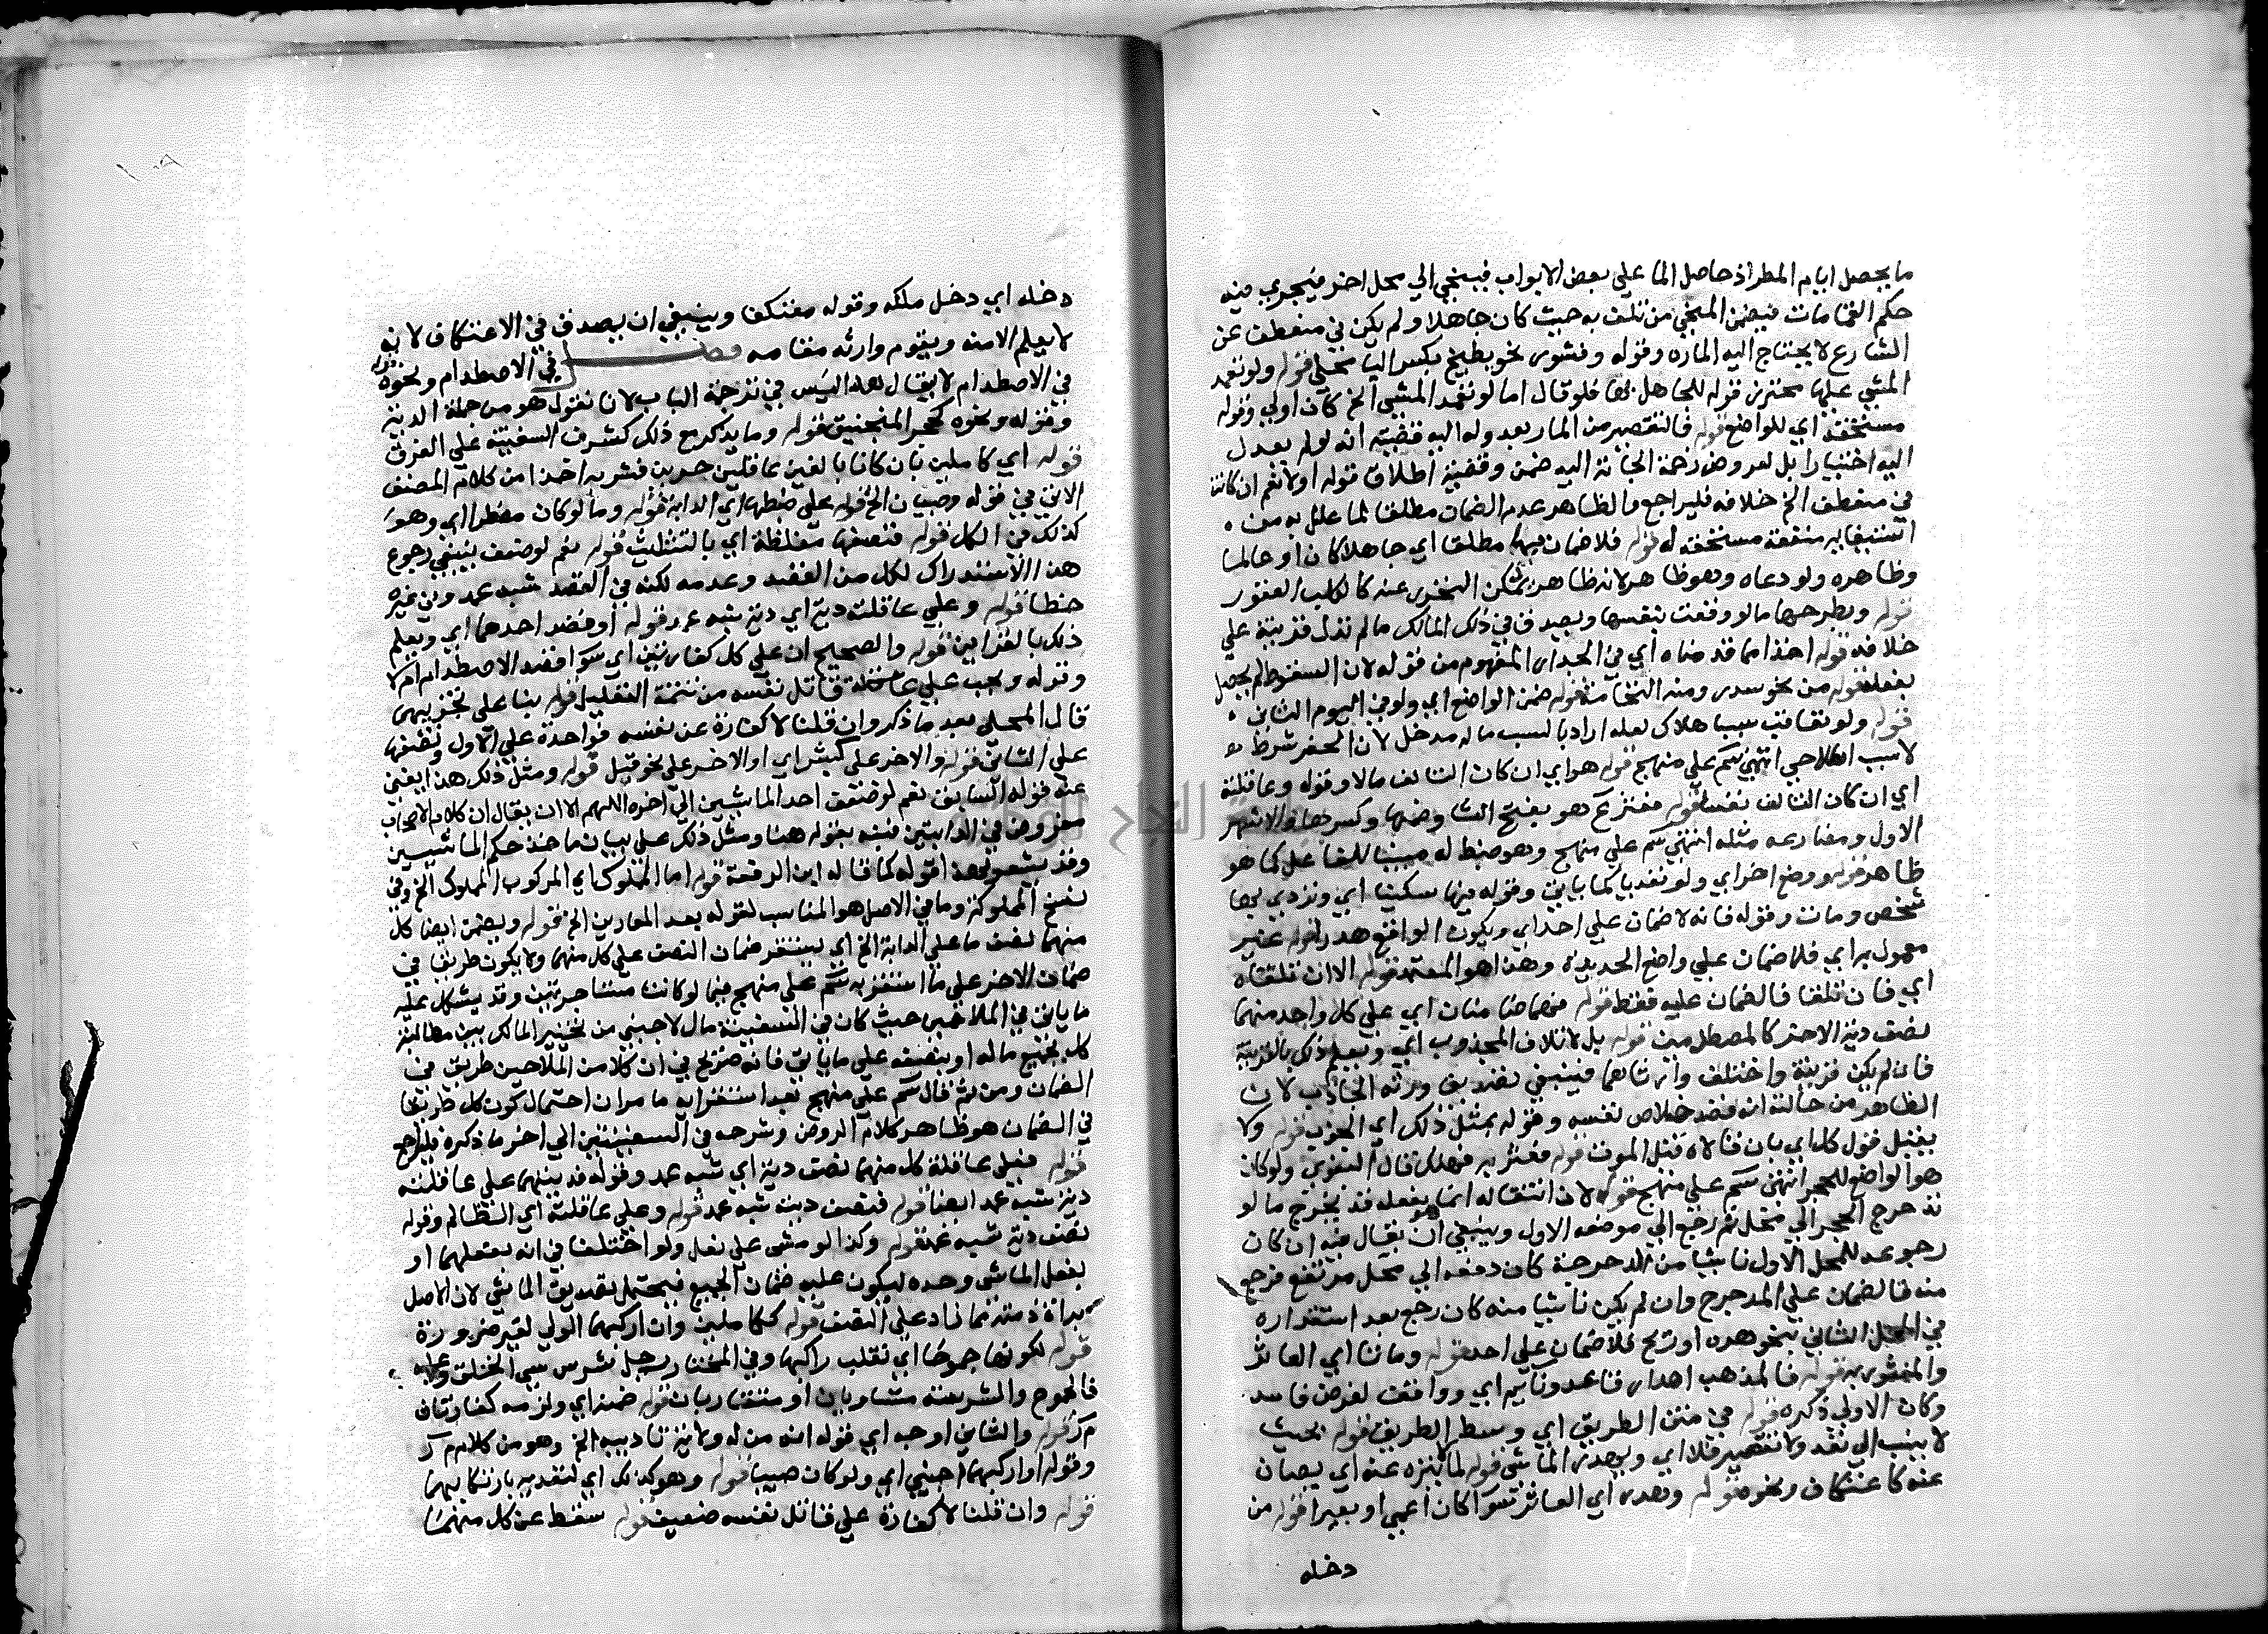 ما يحصل ايام المطر اذ حاصل الما علي بعض الابواب فينحي الي محل اخر فيجري فيه
حكم القمامات فيضمن المنحي من تلف به حيث كان جاهلا ولم يكن في منعطف عن
الشارع لا يحتاج اليه الماره وقوله وقشور نحو بطيخ بكسر البا محلي قوله ولو تعمد
المشي عليها محترز قوله للجاهل بها فلو قال اما لو تعمد المشي الخ كان اولي وقوله
مستحقة اي للواضع قوله فالتقصير من المار بعدوله اليه قضيته انه لو لم يعدل
اليه اختيارا بل لعروض زحمة الجاته اليه ضمن وقضية اطلاق قوله اولا نعم ان كانت
في منعطف الخ خلافه فليراجع والظاهر عدم الضمان مطلقا لما علل به من ان
استيفا منفعة مستحقة له قوله فلا ضمان فيها مطلقا اي جاهلا كان او عالما
وظاهره ولو دعاه وهو ظاهر لانه ظاهر يمكن التحرز عنه كالكلب العقور
قوله وبطرحها ما لو وقعت بنفسها ويصدق في ذلك المالك ما لم تدل قرينة علي
خلافه قوله اخذا مما قدمناه اي في الجدار المفهوم من قوله لان السقوط لم يحصل
بفعله قوله من نحو سدر ومنه النخامة قوله ضمن الواضع اي ولو في اليوم الثاني
قوله ولو تعاقب سببا هلاك لعله اراد بالسبب ما له مدخل لان الحفر شرط
لا سبب اصطلاحي انتهي سم علي منهج قوله هو اي ان كان التالف مالا وقوله وعاقلته
اي ان كان التالف نفسا قوله فعثر ع هو بفتح الثا وضمها وكسرها والاشهر
الاول ومضارعه مثله انتهي سم علي منهج وهو ضبط له مبنيا للفاعل كما هو
ظاهر قوله ووضع اخر اي ولو تعديا كما ياتي وقوله فيها سكينا اي وتردي بها
شخص ومات وقوله فانه لا ضمان علي احد اي ويكون الواقع هدرا قوله غير
معمول به اي فلا ضمان علي واضع الحديده وهذا هو المعتمد قوله الا ان تلفتاه
اي فان تلفتا فالضمان عليه فقط قوله فهما ضامنان اي علي كل واحد منهما
نصف دية الاخر كالمصطدمين قوله بل لاتلاف المجذوب اي ويعلم ذلك بالقرينة
فان لم يكن قرينة واختلف وارثاهما فينبغي تصديق ورثة الجاذب لان
الظاهر من حالته انه قصد خلاص نفسه وقوله بمثل ذلك اي الحزب قوله ولا
يقبل قول كل اي بان قالاه قبل الموت قوله فعثر به فهلك قال البغوي ولو كان
هو الواضع للحجر انتهي سم علي منهج قوله لان انتقاله انما هو بفعله قد يخرج ما لو
تدحرج الحجر الي محل ثم رجع الي موضعه الاول وينبغي ان يقال فيه ان كان
رجوعه للمحل الاول ناشيا من الدحرجة كان دفعه الي محل مرتفع فرجع
منه فالضمان علي المدحرج وان لم يكن ناشيا منه كان رجع بعد استقراره
في المحل الثاني بنحو هره او ريح فلا ضمان علي احد قوله وماتا اي العاثر
والمعثور به قوله فالمذهب اهدار قاعد ونايم اي وواقف لغرض فاسد
وكان الاولي ذكره قوله في متن الطريق اي وسط الطريق قوله بحيث
لا ينسب الي تعد ولا تقصير فلا اي ويهدر الماشي قوله لما ينزه عنه اي يصان
عنه كاعتكاف ونحو قوله وهدر اي العاثر سوا كان اعمي او بصيرا قوله من
دخله
دخله اي دخل ملكه وقوله معتكفا وينبغي ان يصدق في الاعتكاف لانه
لا يعلم الا منه ويقوم وارثه مقامه فصل في الاصطدام ونحوه قوله
في الاصطدام لا يقال لعله ليس في ترجمة الباب لانا نقول هو من جملة الدية
وقوله ونحوه كحجر المنجنيق قوله وما يذكر مع ذلك كشرف السفينة علي الغرق
قوله اي كاملين بان كانا بالغين عاقلين حرين فسر به اخذا من كلام المصنف
الاتي في قوله وصبيان الخ قوله علي ضبطها اي الدابة قوله وما لو كان مضطرا اي وهو
كذلك في الكل قوله فنصفها مغلظة اي بالتثليث قوله نعم لو ضعف ينبغي رجوع
هذا الاستدراك لكل من القصد وعدمه لكنه في القصد شبه عمد وفي غيره
خطا قوله وعلي عاقلته دية اي دية شبه عمد قوله او قصد احدهما اي ويعلم
ذلك بالقراين قوله والصحيح ان علي كل كفارتين اي سوا قصد الاصطدام ام لا
وقوله ويجب علي عاقلة قاتل نفسه من تتمة التعليل قوله بنا علي تجزيهما
قال المحلي بعد ما ذكر وان قلنا لا كفارة عن نفسه فواحدة علي الاول ونصفها
علي الثاني قوله والاخر علي كبش اي او الاخر علي نحو فيل قوله ومثل ذلك هذا يغني
عنه قوله السابق نعم لو ضعف احد الماشيين الي اخره اللهم الا ان يقال ان كلام الاصحاب
مفروض في الدابتين فنبه بقوله هنا ومثل ذلك علي بيان ماخذ حكم الماشيين
وقد يشعر بهذا قوله كما قاله ابن الرفعة قوله اما المملوك اي المركوب المملوك الخ وفي
نسخ المملوكة وما في الاصل هو المناسب لقوله بعد المعارين الخ قوله ويضمن ايضا كل
منهما نصف ما علي الدابة الخ اي يستقر ضمان النصف علي كل منهما ولا يكون طريقا في
ضمان الاخر علي ما استقر به سم علي منهج فيما لو كانتا مستاجرتين وقد يشكل عليه
ما ياتي في الملاحين حيث كان في السفينة مال لاجنبي من تخيير المالك بين مطالبة
كل بجميع ماله او بنصفه علي ما ياتي فانه صريح في ان كلا من الملاحين طريق في
الضمان ومن ثم قال سم علي منهج بعد استقرابه ما مر ان احتمال كون كل طريقا
في الضمان هو ظاهر كلام الروض وشرحه في السفينتين الي اخر ما ذكره فليراجع
قوله فعلي عاقلة كل منهما نصف دية اي شبه عمد وقوله فديتهما علي عاقلته
دية شبه عمد ايضا قوله فنصف ديته شبه عمد قوله وعلي عاقلته اي الظالم وقوله
نصف دية شبه عمد قوله وكذا لو مشي علي نعل ولو اختلفا في انه بفعلهما او
بفعل الماشي وحده ليكون عليه ضمان الجميع فيحتمل تصديق الماشي لان الاصل
براة ذمته مما زاد علي النصف قوله ككاملين وان اركبهما الولي لغير ضرورة
قوله لكونها جموحا اي تقلب راكبها وفي المختار رجل شرس سي الخلق وعليه
فالجموح والشرسة متساويان او متقاربان قوله ضمن اي ولزمه كفارتان
م ر قوله والثاني اوجه اي قوله انه من له ولاية تاديبه الخ وهو من كلام م ر
وقوله او اركبهما اجنبي اي ولو كان صبيا قوله وهو كذلك اي لتعديه باركابهما
قوله وان قلنا لا كفارة علي قاتل نفسه ضعيف قوله سقط عن كل منهما